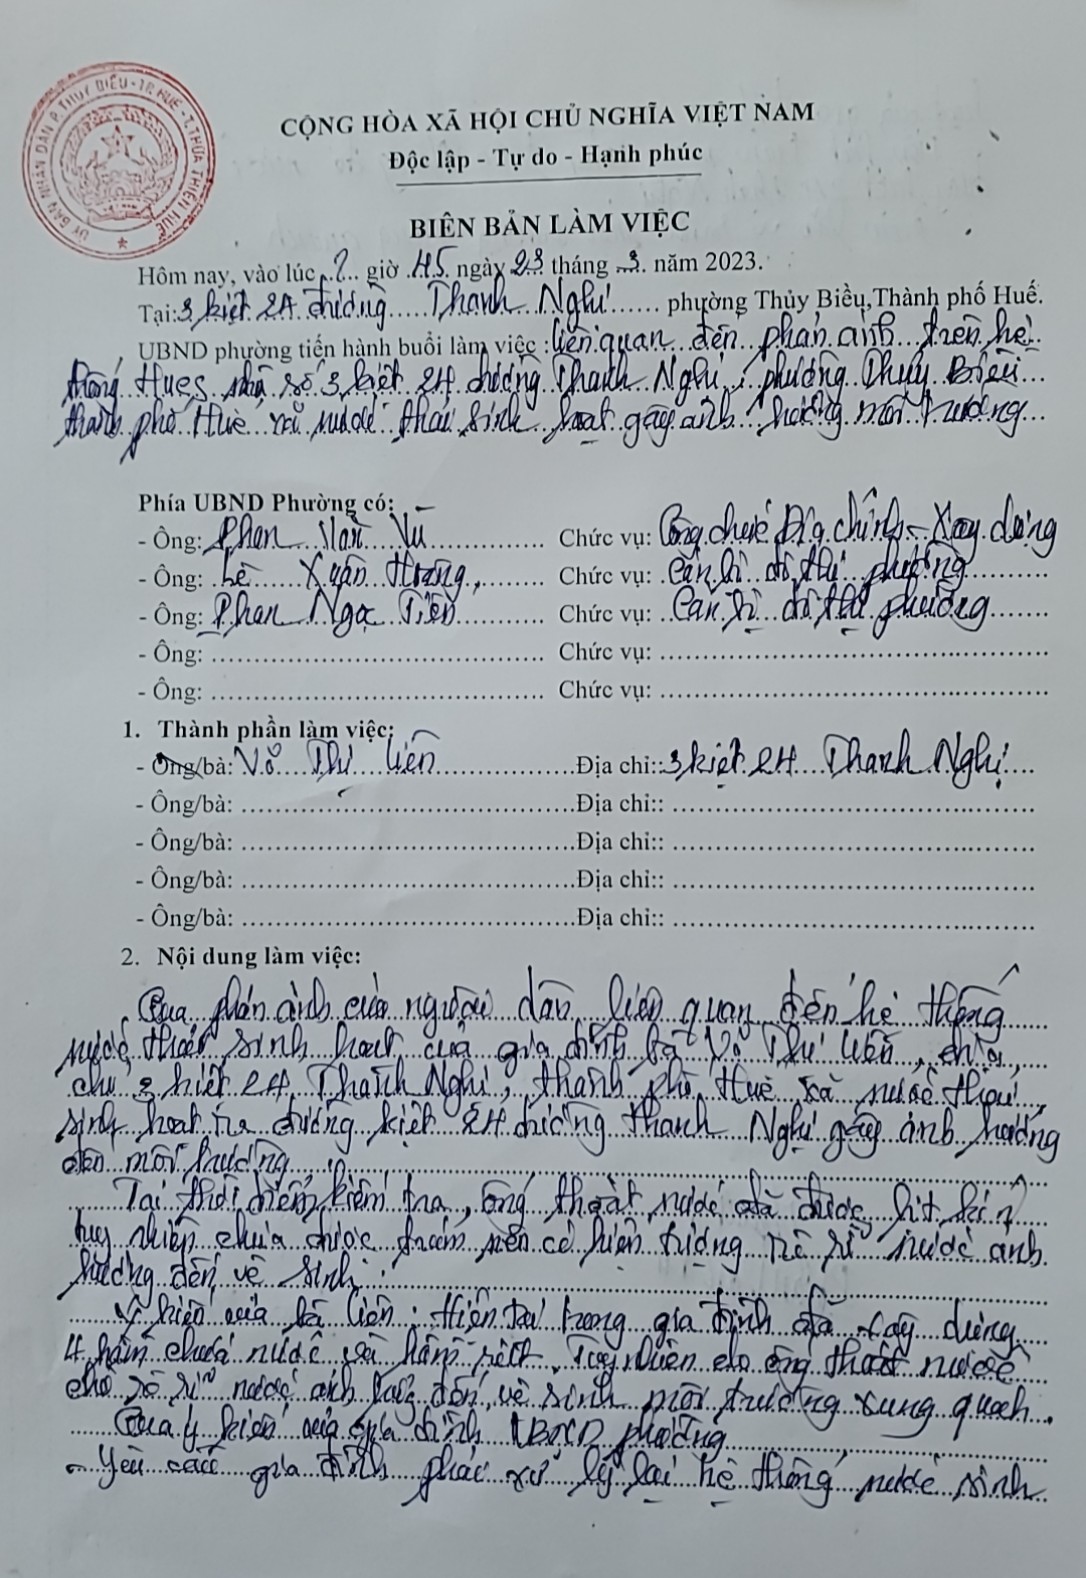 ỦY BAN NHÂN DÂN P. THỦY BIỀU - TP. HUẾ - T. THỪA THIÊN HUẾ
CỘNG HÒA XÃ HỘI CHỦ NGHĨA VIỆT NAM
Độc lập - Tự do - Hạnh phúc
BIÊN BẢN LÀM VIỆC
Hôm nay, vào lúc giờ 45 ngày 23 tháng 3 năm 2023.
Tại: 3 kiệt 24 đường Thanh Nghị phường Thủy Biều, Thành phố Huế.
UBND phường tiến hành buổi làm việc : liên quan đến phản ánh trên hệ
thống HueS nhà số 3 kiệt 24 đường Thanh Nghị, phường Thủy Biều
thành phố Huế nước thải sinh hoạt gây ảnh hưởng môi trường
Phía UBND Phường có:
- Ông: Phan Văn Vũ Chức vụ: Công chức Địa chính - Xây dựng
- Ông: Lê Xuân Hoàng, Chức vụ: Cán bộ đô thị phường
- Ông: Phan Ngọc Tiến Chức vụ: Cán bộ đô thị phường
- Ông: Chức vụ:
- Ông: Chức vụ:
1. Thành phần làm việc:
- Ông/bà: Võ Thị Liên Địa chỉ:: 3 kiệt 24 Thanh Nghị
- Ông/bà: Địa chỉ::
- Ông/bà: Địa chỉ::
- Ông/bà: Địa chỉ::
- Ông/bà: Địa chỉ::
2. Nội dung làm việc:
Qua phản ánh của người dân liên quan đến hệ thống
nước thải sinh hoạt của gia đình bà Võ Thị Liên, địa
chỉ 3 kiệt 24 Thanh Nghị, thành phố Huế xả nước thải
sinh hoạt ra đường kiệt 24 đường Thanh Nghị gây ảnh hưởng
đến môi trường
Tại thời điểm kiểm tra, ống thoát nước đã được bịt kín
tuy nhiên chưa được trám nên có hiện tượng rò rỉ nước ảnh
hưởng đến vệ sinh.
Ý kiến của bà Liên: Hiện tại trong gia đình đã xây dựng
4 hầm chứa nước và hầm rút. Tuy nhiên do ống thoát nước
rò rỉ nước ảnh hưởng đến vệ sinh môi trường xung quanh.
Qua ý kiến của gia đình UBND phường
- Yêu cầu gia đình phải xử lý lại hệ thống nước sinh